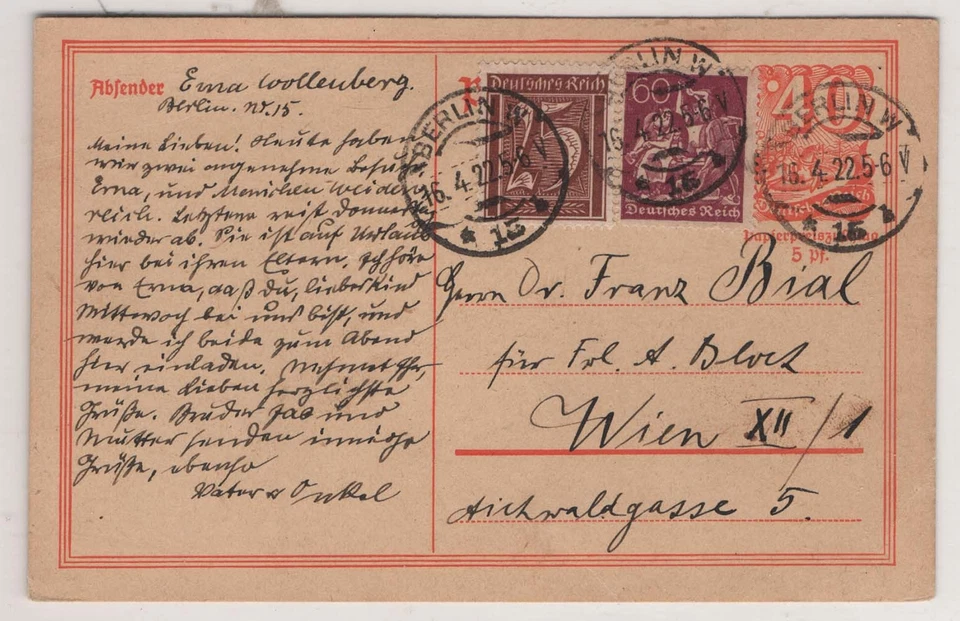 Absender Erna Wollenberg.
Berlin. W. 15.
Meine Lieben! Heute haben
wir zwei angenehme
Erna, und
Letztere reist
wieder ab. Sie ist auf Urlaub
hier bei ihren Eltern. Ich höre
von Erna, daß Du, liebes Kind
Mittwoch bei uns bist, und
werde ich beide zum Abend
hier einladen. Nehmet Ihr,
meine Lieben herzlichste
Grüße. Bruder und
Mutter senden innige
Grüße, ebenso
Vater u Onkel
Deutsches Reich
75
60
Deutsches Reich
40
Deutsches Reich
Papierpreiszuschlag
5 Pf.
BERLIN W
16. 4. 22. 5-6 V
* 15 *
BERLIN W
16. 4. 22. 5-6 V
* 15 *
BERLIN W
16. 4. 22. 5-6 V
* 15 *
Herrn Dr. Franz Bial
für Frl. A. Bloch
Wien XII/1
Aichwaldgasse 5.